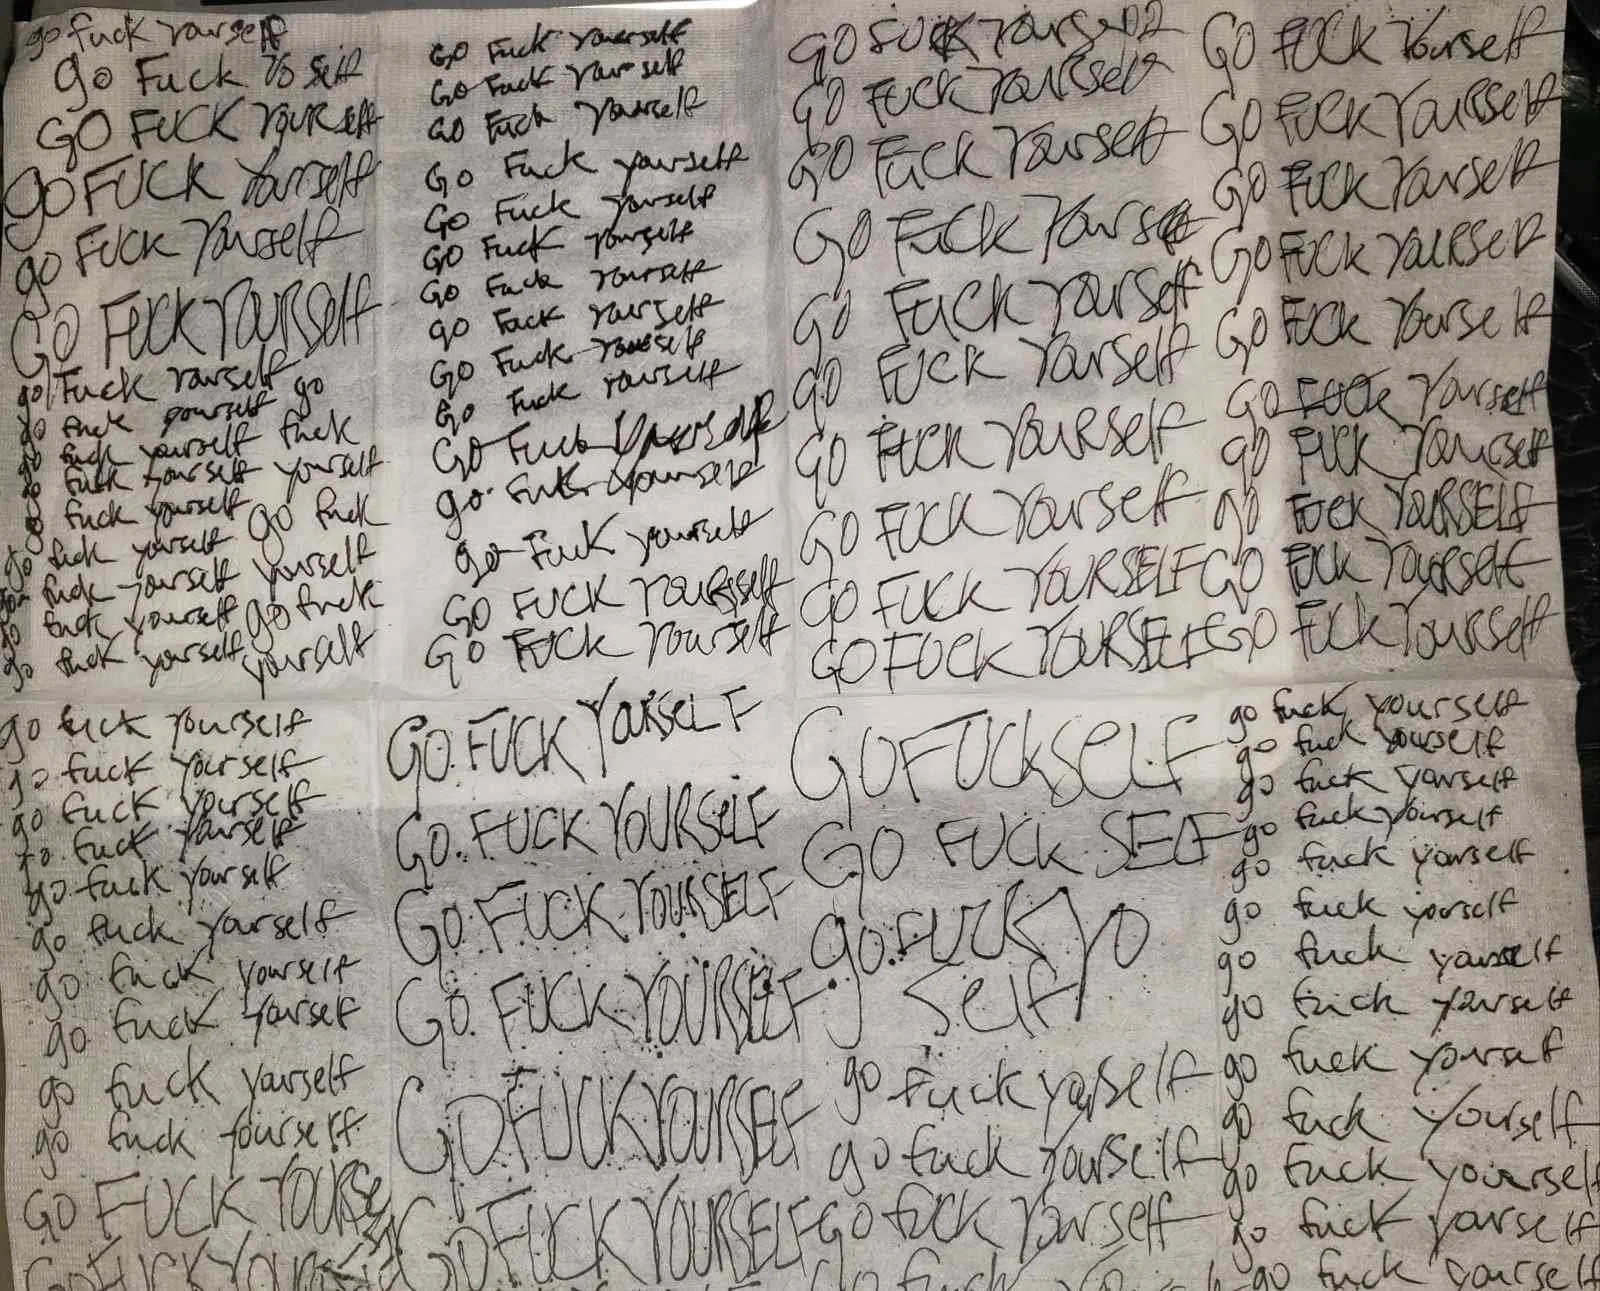 go fuck yourself
go Fuck Yo Self
GO FUCK YOURself
go FUCK Yourself
go FUCK Yourself
GO FUCK YOURSElf
go Fuck Yourself
go fuck yourself go
go fuck yourself fuck
go fuck yourself yourself
go fuck yourself
go fuck yourself go fuck
go fuck yourself yourself
go fuck yourself go fuck
go fuck yourself yourself
GO Fuck Yourself
Go Fuck Yourself
GO Fuck Yourself
Go Fuck yourself
Go Fuck yourself
GO Fuck yourself
Go Fuck yourself
go Fuck Yourself
Go Fuck Yourself
Go Fuck Yourself
GO Fuck Yourself
go Fuck yourself
go Fuck yourself
GO FUCK YOURself
Go FUCK Yourself
GO FUCK Yourself
GO FUCK YOURself
GO Fuck Yourself
GO FUCK Yourself
GO FUCK YOURself
go FUCK Yourself
GO FUCK YOURSElf
GO FUCK Yourself
GO FUCK YOURSELF
GO FUCK YOURSELF
GO FUCK Yourself
GO FUCK YOURself
GO FUCK Yourself
GO FUCK YOURSElf
GO FUCK Yourself
GO FUCK Yourself
go FUCK Yourself
go FUCK YOURSELF
GO FUCK YOURSElf
GO FUCK YOURSElf
go fuck yourself
go fuck yourself
go fuck yourself
go fuck yourself
go fuck yourself
go fuck yourself
go fuck yourself
go fuck yourself
go fuck yourself
go fuck yourself
GO FUCK YOURSELF
GO FUCK YOURSELF
GO. FUCK YOURSELF
GO. FUCK YOURSELF
GO. FUCK YOURSELF
GO. FUCK YOURSELF
GO FUCK YOURSELF
GO FUCK YOURSELF
GO FUCKSELF
GO FUCK SELF
go. FUCK YO
Self
go fuck yourself
go fuck yourself
Go fuck Yourself
Go fuck
go fuck yourself
go fuck yourself
go fuck yourself
go fuck yourself
go fuck yourself
go fuck yourself
go fuck yourself
go fuck yourself
go fuck yourself
go fuck yourself
go fuck yourself
go fuck yourself
go fuck yourself